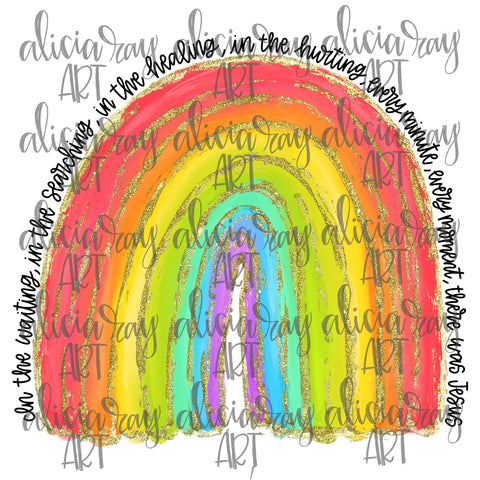 In the waiting, in the searching, in the healing, in the hurting, every minute, every moment there was Jesus
alicia ray alicia ray alicia ray
ART ART ART
alicia ray alicia ray alicia ray
ART ART ART
alicia ray alicia ray alicia ray
ART ART ART
alicia ray alicia ray alicia ray
ART ART ART
alicia ray alicia ray alicia ray
ART ART ART